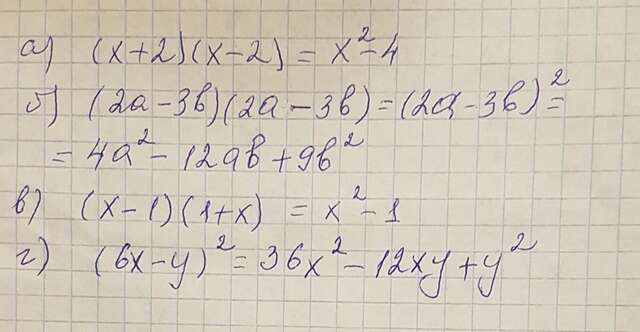 а) (x+2)(x-2) = x²-4
б) (2a-3b)(2a-3b)=(2a-3b)²=
= 4a²-12ab+9b²
в) (x-1)(1+x) = x²-1
г) (6x-y)²=36x²-12xy+y²